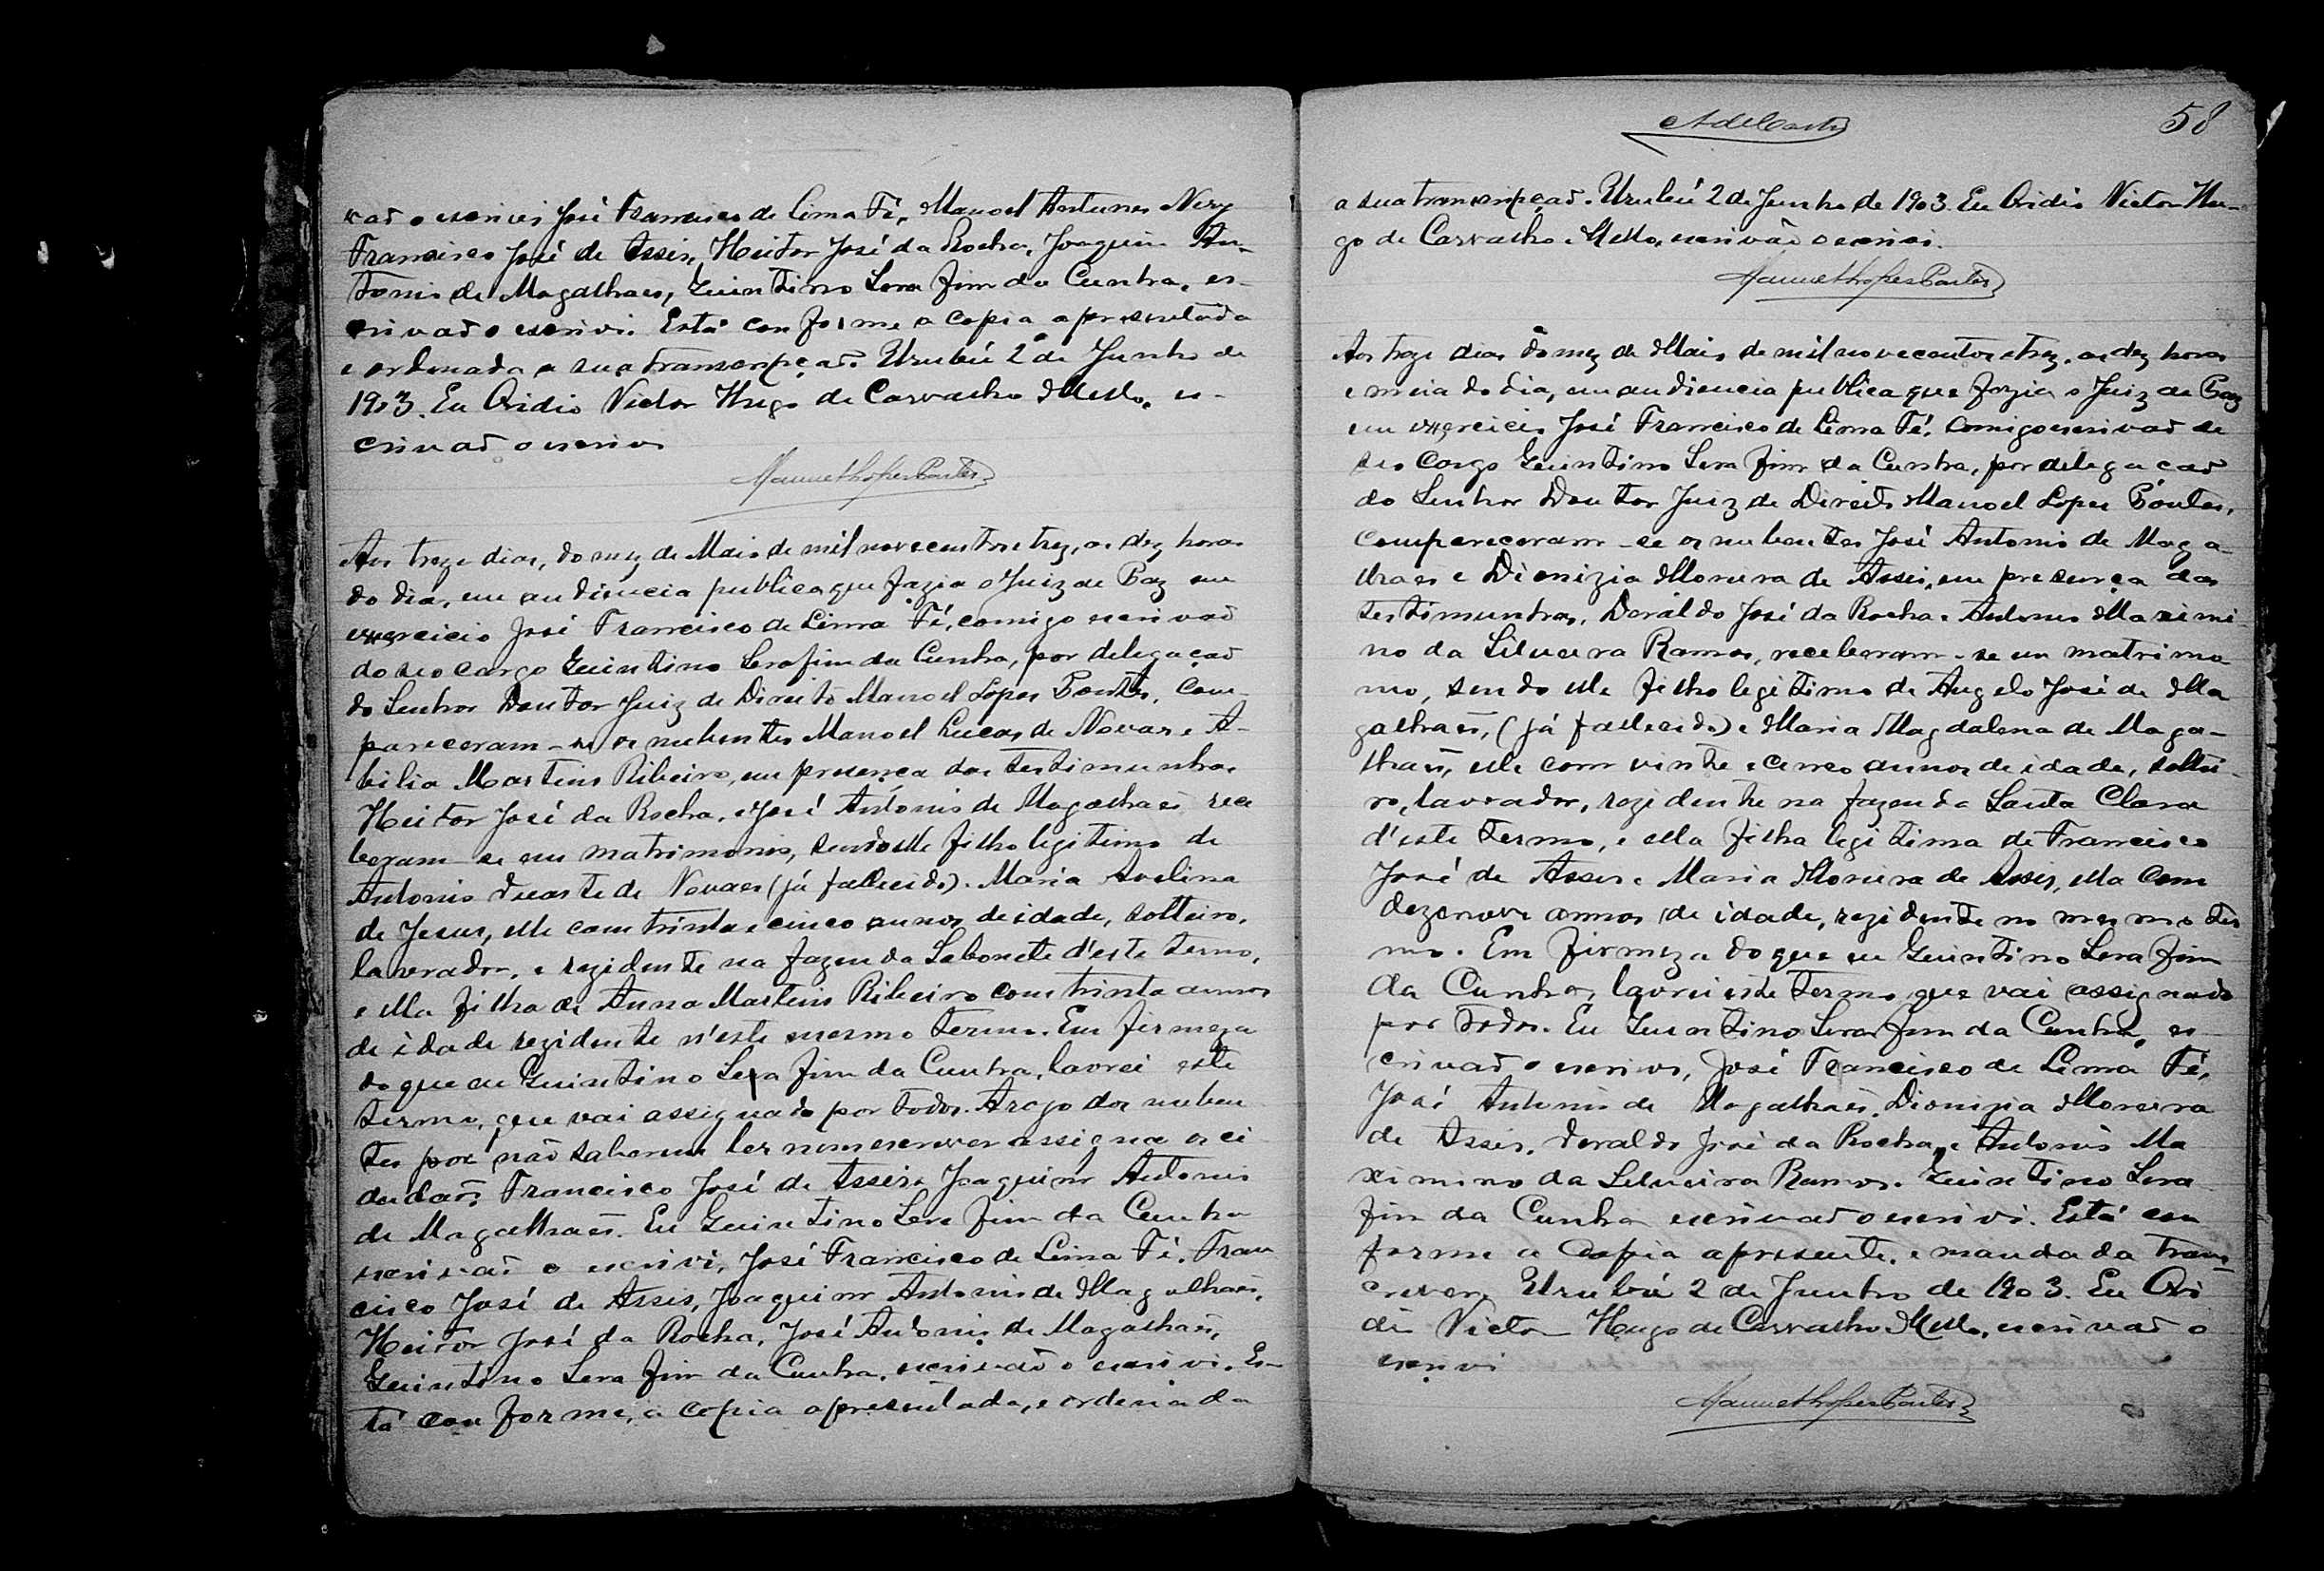 vaõ o escrivi José Francisco de Lima Fé, Manoel Antunes Nery
Francisco José de Assis, Heitor José da Rocha, Joaquim An-
tonio de Magalhaes, Quintino Serafim da Cunha, es-
crivaõ o escrivi. Está conforme a copia apresentada
e ordenada a sua transcripçaõ. Urubú 2 de Junho de
1903. Eu Ovidio Victor Hugo de Carvalho e Mello, es-
crivaõ o escrivi
Manuel Lopes Pontes
Aos treze dias, do mez de Maio de mil novecentos e trez, as dez horas
do dia, em audiencia publica que fazia o Juiz de Paz em
exercicio José Francisco de Lima Fé, comigo escrivaõ
do seo cargo Quintino Serafim da Cunha, por delegaçaõ
do Senhor Doutor Juiz de Direito Manoel Lopes Pontes, Com-
pareceram-se os nubentes Manoel Lucas de Novaes e A-
bilia Martins Ribeiro, em presença das testimunhas
Heitor José da Rocha, e José Antonio de Magalhaẽs rece
beram-se em matrimonio, sendo elle filho legitimo de
Antonio Duarte de Novaes (já fallecido) e Maria Avelina
de Jesus, elle com trinta e cinco annos de idade, solteiro,
lavrador, e rezidente na fazenda Sabonete d'este termo,
e ella filha de Anna Martins Ribeiro com trinta annos
de idade rezidente n'este mesmo termo. Em firmeza
do que eu Quintino Serafim da Cunha, lavrei este
termo, que vai assignado por todos. Arogo dos nuben
tes por não saberem ler nem escrever assigna os ci
dadaõs Francisco José de Assis e Joaquim Antonio
de Magalhaẽs. Eu Quintino Serafim da Cunha
escrivaõ o escrivi, José Francisco de Lima Fé, Fran
cisco José de Assis, Joaquim Antonio de Magalhaẽs,
Heitor José da Rocha, José Antonio de Magalhaẽs,
Quintino Serafim da Cunha, escrivaõ o escrivi. Es-
tá conforme, a copia apresentada, e ordenada
58
a sua transcripçaõ. Urubú 2 de Junho de 1903. Eu Ovidio Victor Hu-
go de Carvalho e Mello, escrivão o escrivi.
Manuel Lopes Pontes
Aos treze dias do mez de Maio de mil novecentos e trez, as dez horas
e meia do dia, em audiencia publica que fazia o Juiz de Paz
em exercicio José Francisco de Lima Fé, comigo escrivaõ de
seo cargo Quintino Serafim da Cunha, por delegacaõ
do Senhor Doutor Juiz de Direito Manoel Lopes Pontes,
compareceram-se os nubentes José Antonio de Maga-
lhaes e Dionizia Moreira de Assis, em presença das
testimunhas, Deraldo José da Rocha e Antonio Maximi-
no da Silveira Ramos, receberam-se em matrimo
nio, sendo elle filho legitimo de Angelo José de Ma
galhaẽs, (já fallecido) e Maria Magdalena de Maga-
lhaẽs, elle com vinte e cinco annos de idade, soltei-
ro, lavrador, rezidente na fazenda Santa Clara
d'este termo, e ella filha legitima de Francisco
José de Assis e Maria Moreira de Assis, ella com
dezenove annos de idade, rezidente no mesmo ter
mo. Em firmeza do que eu Quintino Serafim
da Cunha, lavrei este termo que vai assignado
por todos. Eu Quintino Serafim da Cunha, es-
crivaõ o escrivi, José Francisco de Lima Fé,
José Antonio de Magalhaẽs, Dionizia Moreira
de Assis, Deraldo José da Rocha, e Antonio Ma
ximino da Silveira Ramos. Quintino Sera
fim da Cunha escrivaõ o escrivi. Está con
forme a copia apresente, e mandada trans
crever. Urubú 2 de Junho de 1903. Eu Ovi
dio Victor Hugo de Carvalho e Mello, escrivaõ o
escrivi
Manuel Lopes Pontes